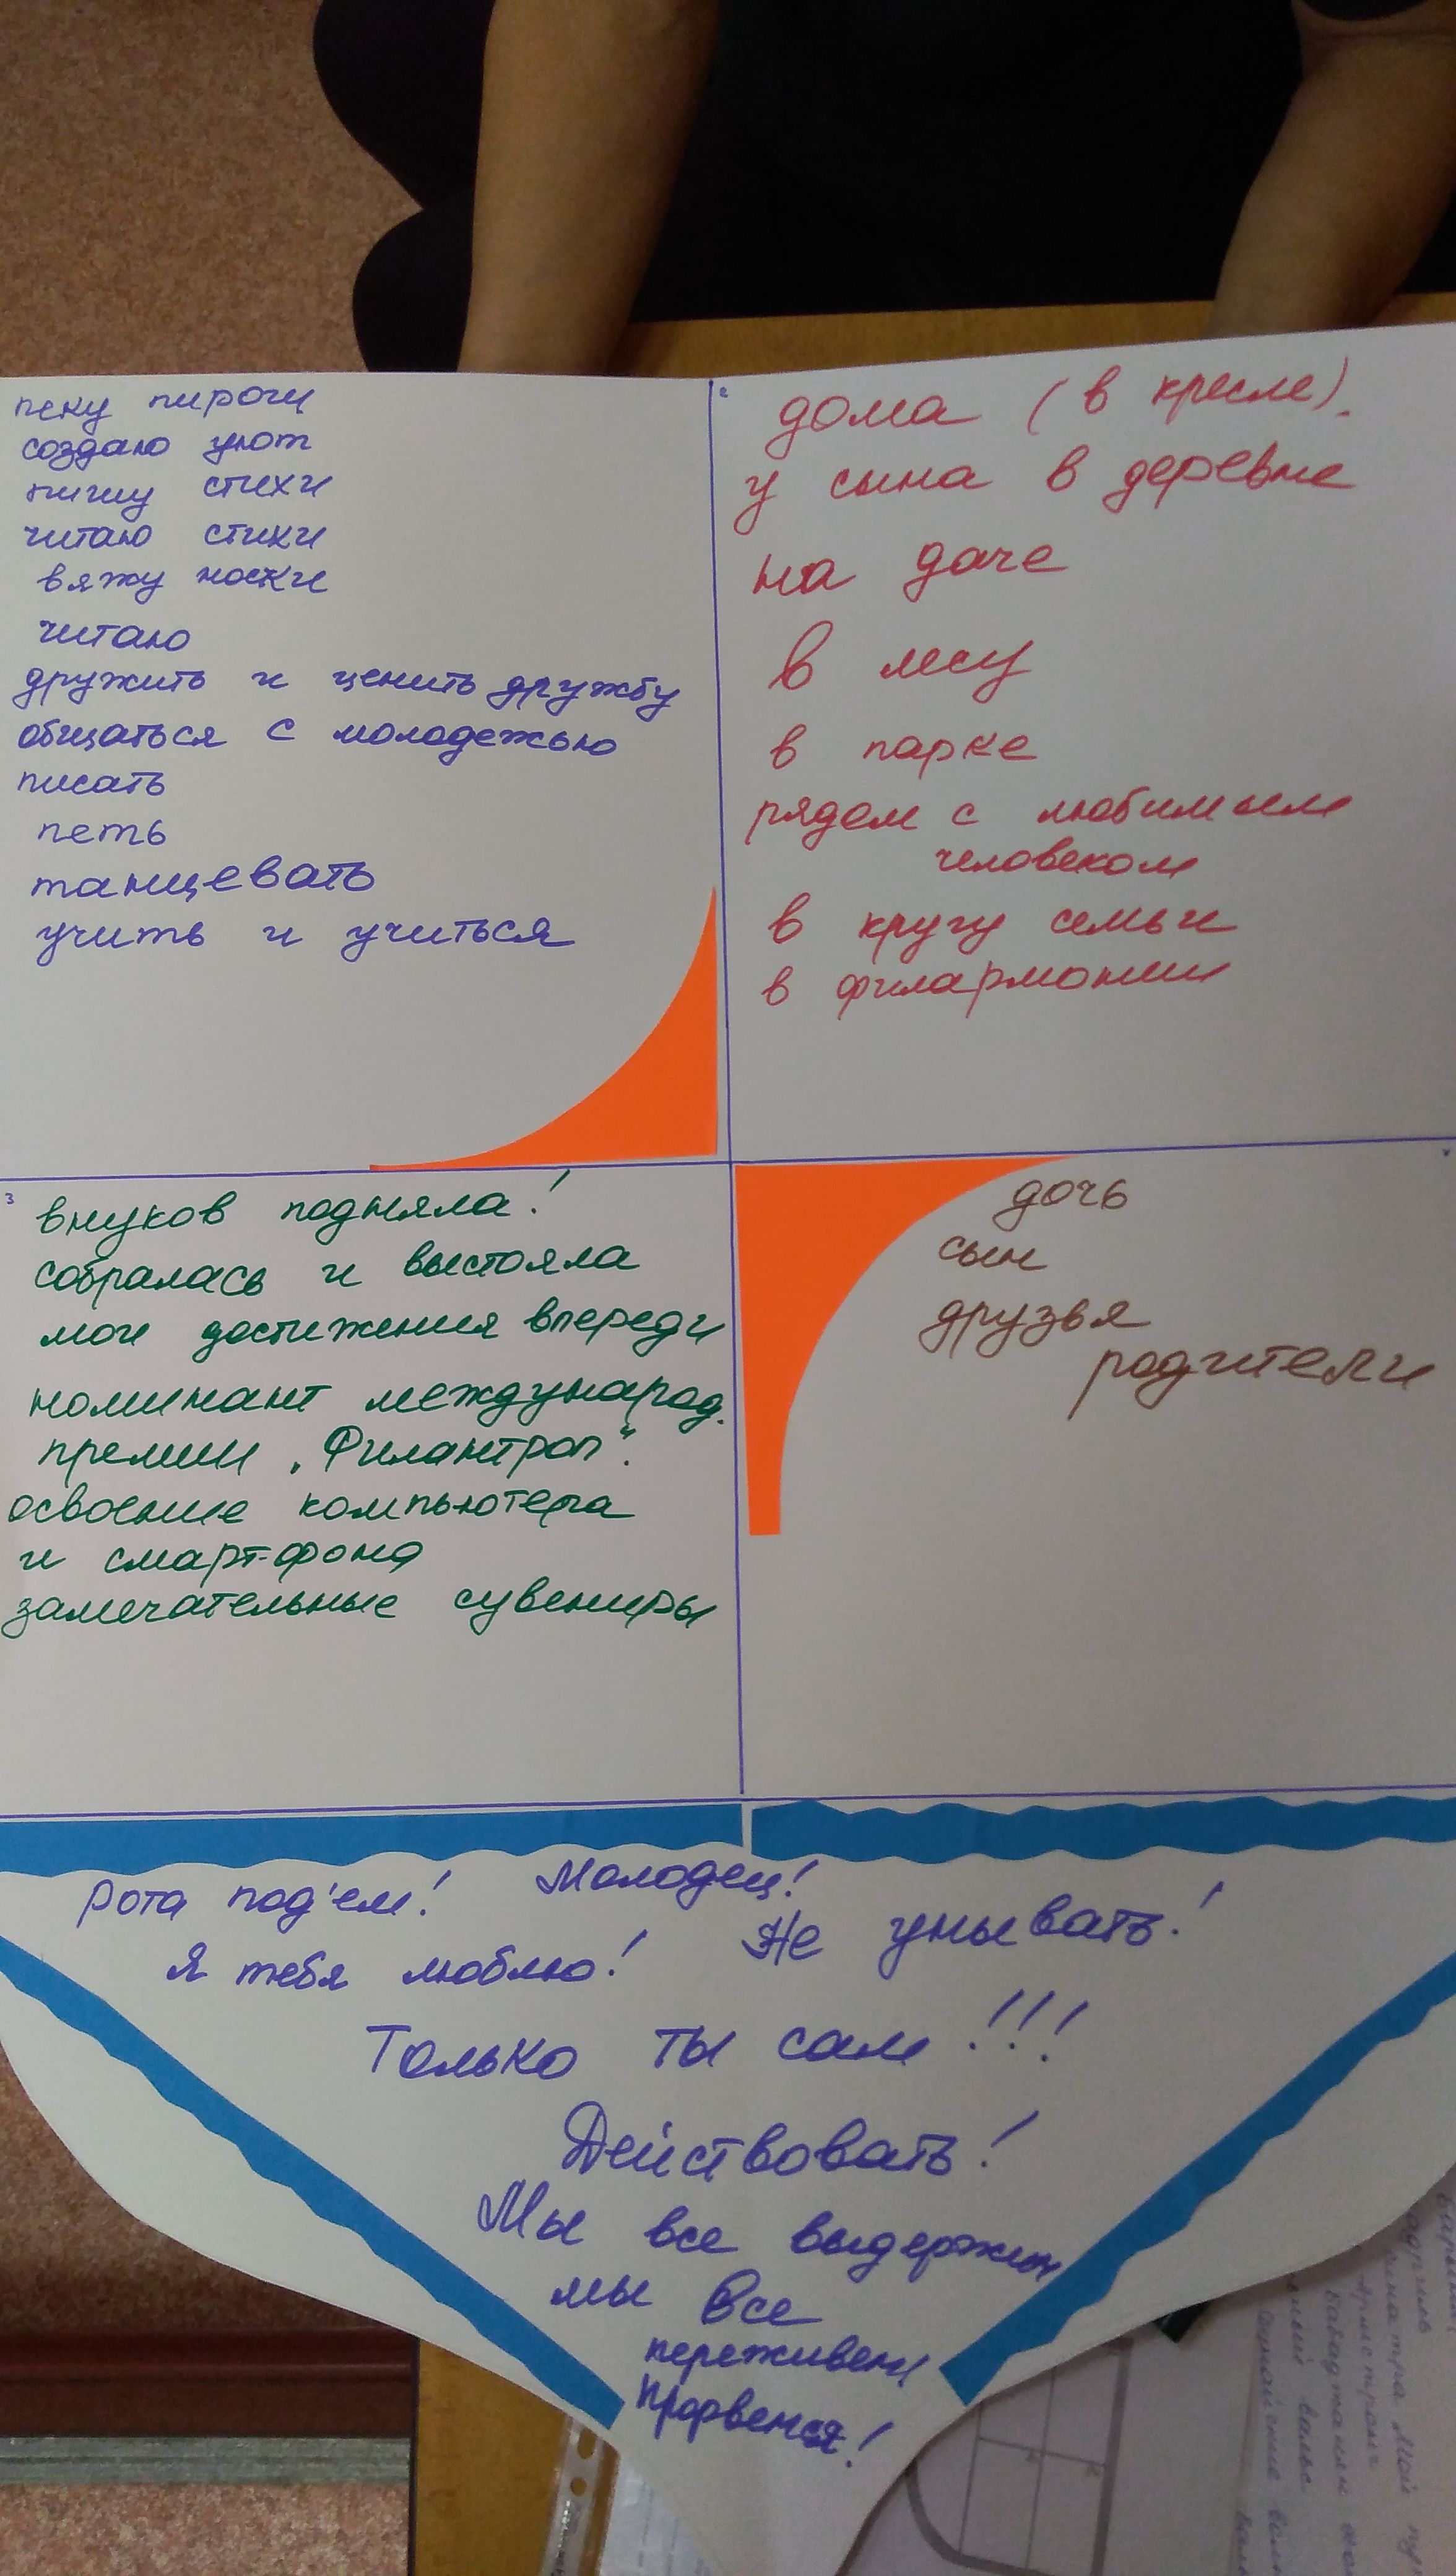 пеку пироги
создаю уют
пишу стихи
читаю стихи
вяжу носки
читаю
дружить и ценить дружбу
общаться с молодежью
писать
петь
танцевать
учить и учиться
2
дома (в кресле).
у сына в деревне
на даче
в лесу
в парке
рядом с любимым
человеком
в кругу семьи
в филармонии
3
внуков подняла!
собралась и выстояла
мои достижения впереди
номинант международ.
премии „Филантроп".
освоение компьютера
и смарт-фона
замечательные сувениры
дочь
сын
друзья
родители
Рота под'ем! Молодец!
Я тебя люблю! Не унывать!
Только ты сам!!!
Действовать!
Мы все выдержим
мы все
переживем
Прорвемся!